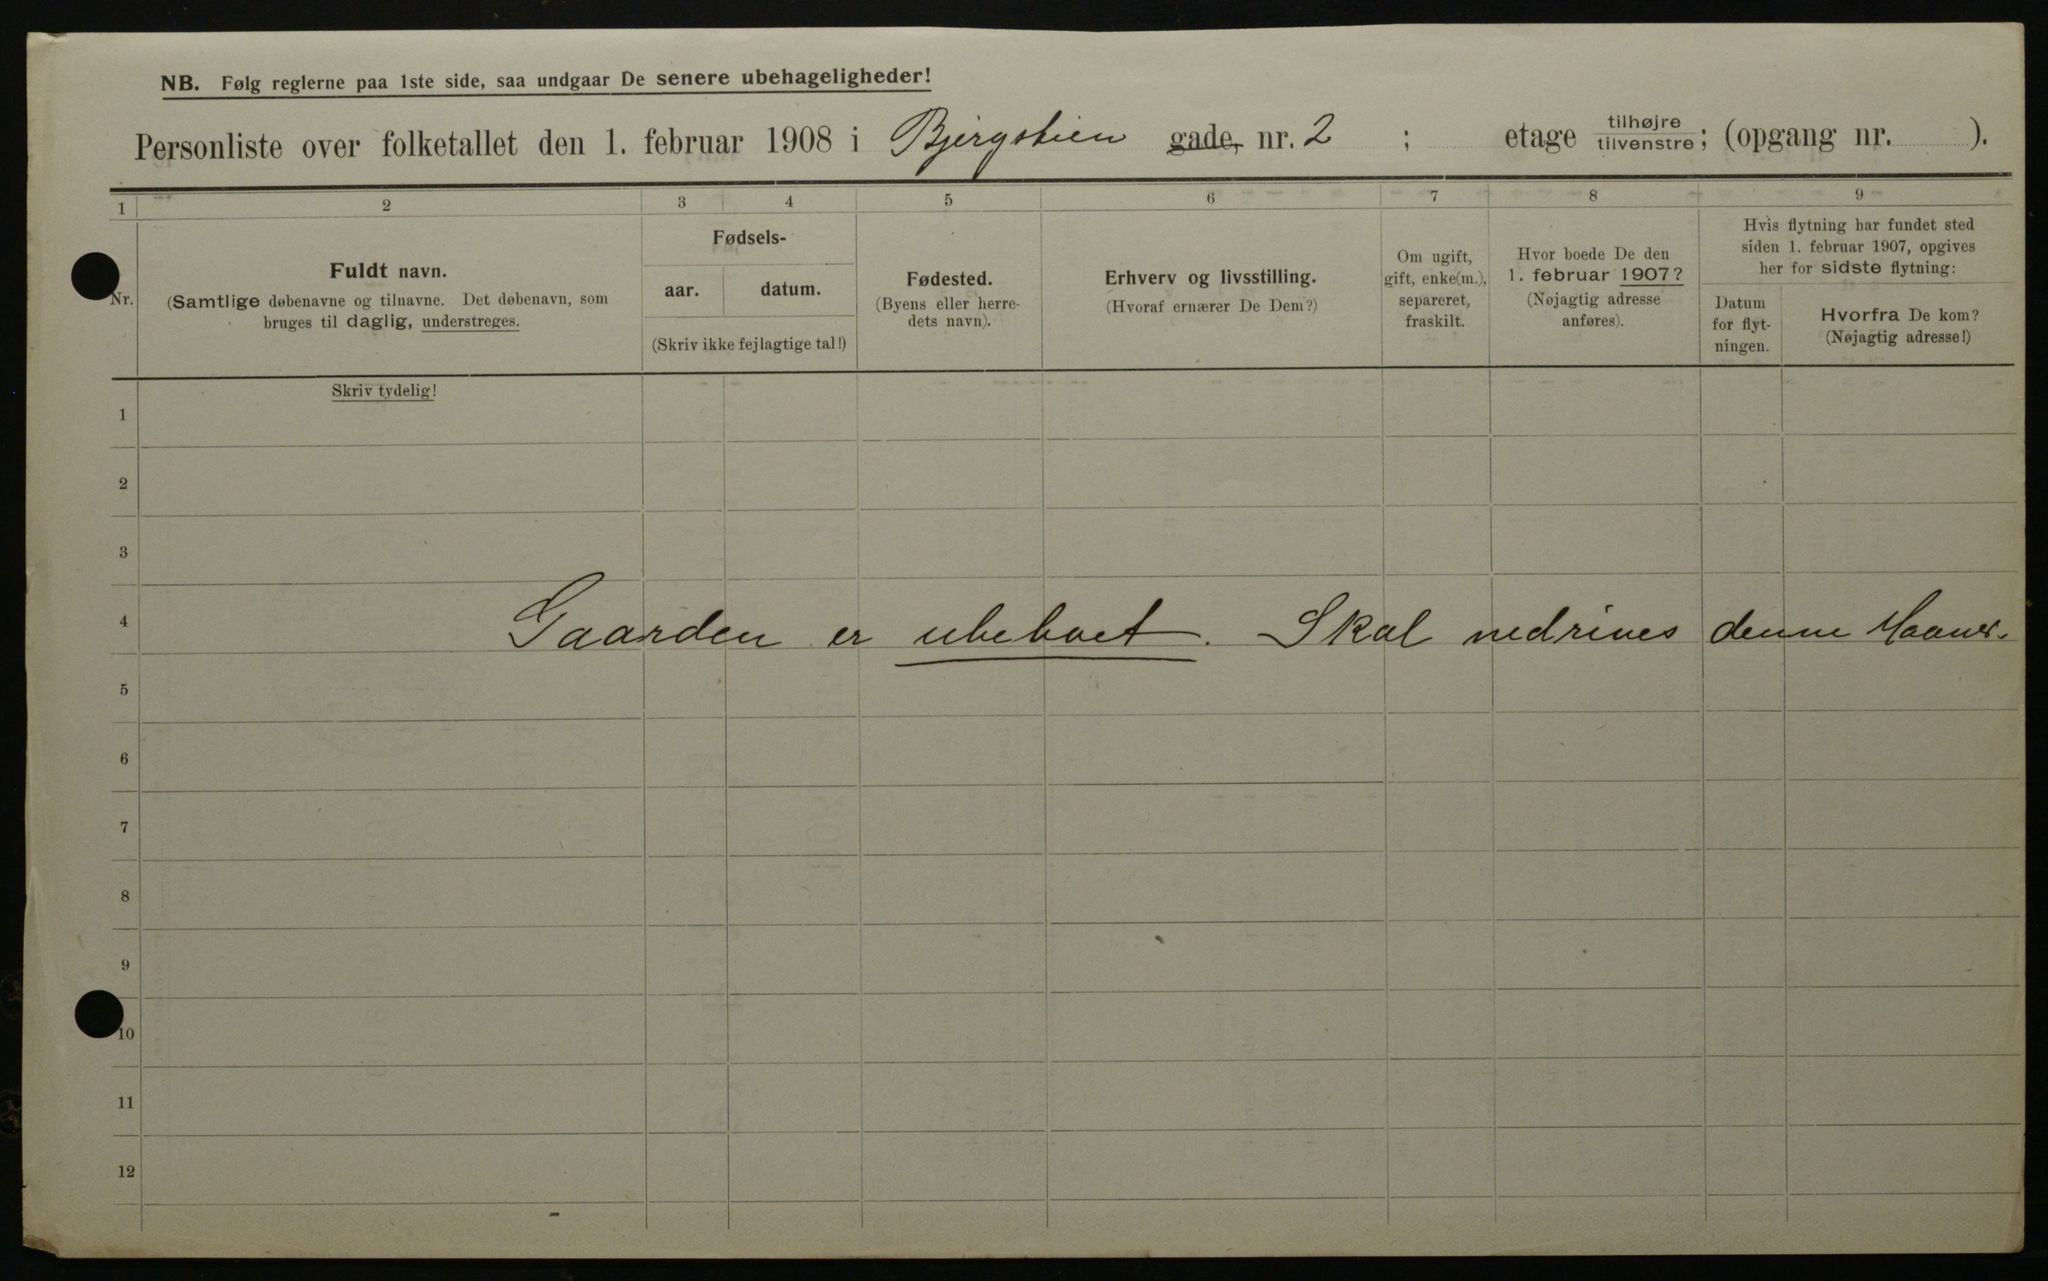 NB. Følg reglerne paa 1ste side, saa undgaar De senere ubehageligheder!
Personliste over folketallet den 1. februar 1908 i Bjergstien gade, nr. 2 ; etage tilhøjre/tilvenstre; (opgang nr. ).
1 2 3 4 5 6 7 8 9
Nr.
Fuldt navn.
(Samtlige døbenavne og tilnavne. Det døbenavn, som
bruges til daglig, understreges.
Fødsels-
aar. datum.
(Skriv ikke fejlagtige tal!)
Fødested.
(Byens eller herre-
dets navn).
Erhverv og livsstilling.
(Hvoraf ernærer De Dem?)
Om ugift,
gift, enke(m.),
separeret,
fraskilt.
Hvor boede De den
1. februar 1907?
(Nøjagtig adresse
anføres).
Hvis flytning har fundet sted
siden 1. februar 1907, opgives
her for sidste flytning:
Datum
for flyt-
ningen.
Hvorfra De kom?
(Nøjagtig adresse!)
Skriv tydelig!
1
2
3
4 Gaarden er ubeboet. Skal nedrives denne
5
6
7
8
9
10
11
12